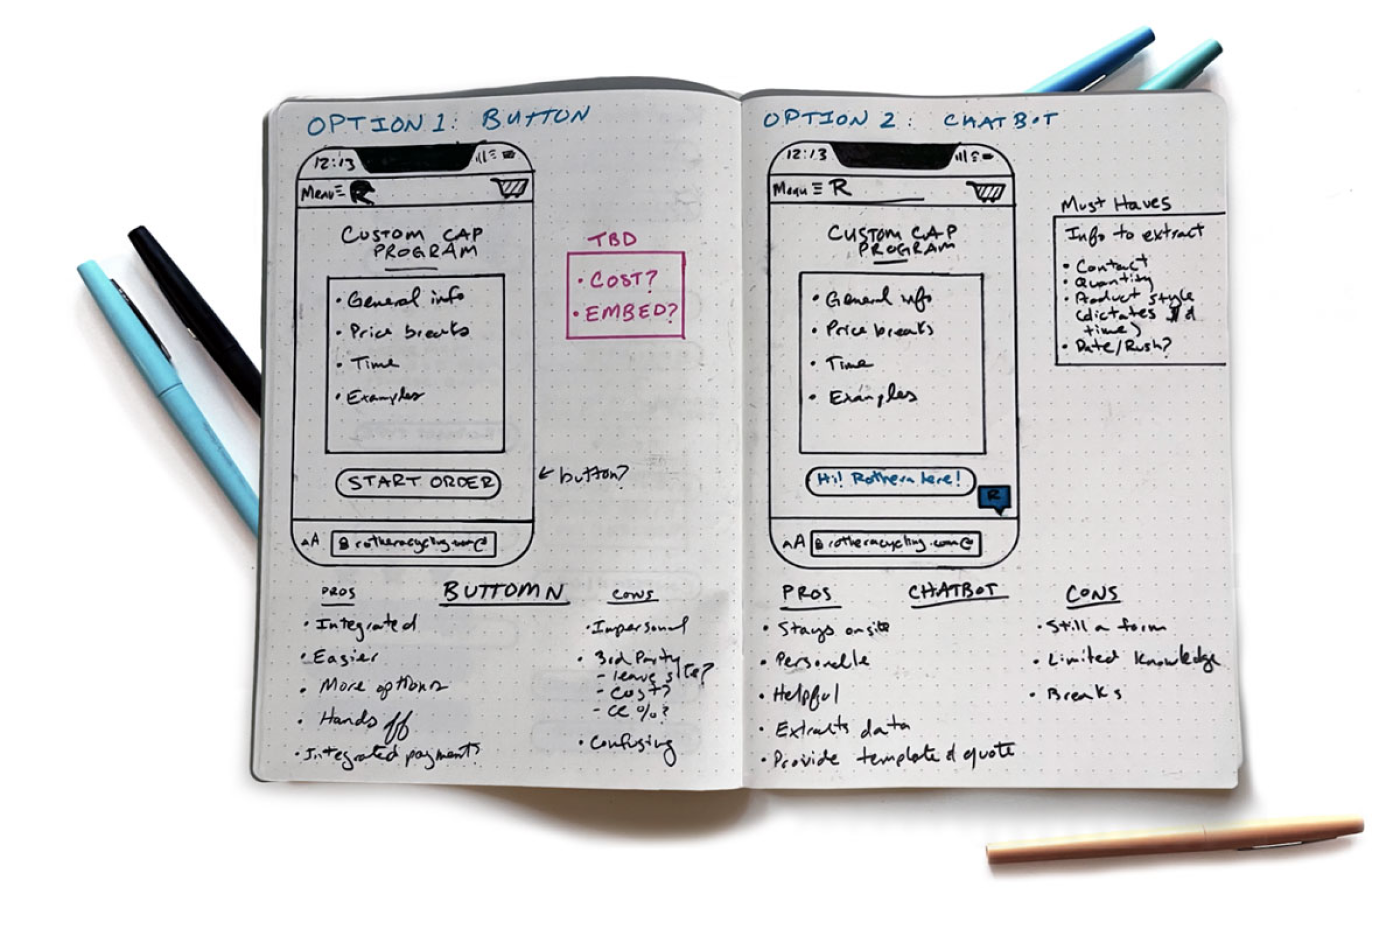 OPTION 1: BUTTON
12:13
Menu R
CUSTOM CAP
PROGRAM
• General info
• Price breaks
• Time
• Examples
START ORDER
← button?
AA rotheracycling.com
TBD
• COST?
• EMBED?
BUTTOMN
PROS
• Integrated
• Easier
• More options
• Hands off
• Integrated payment?
CONS
• Impersonal
• 3rd Party
- leave site?
- Cost?
- CC %?
• Confusing
OPTION 2: CHATBOT
12:13
Menu R
CUSTOM CAP
PROGRAM
• General info
• Price breaks
• Time
• Examples
Hi! Rothera here!
R
AA rotheracycling.com
Must Haves
Info to extract
• Contact
• Quantity
• Product style
(dictates $ &
time)
• Date/Rush?
CHATBOT
PROS
• Stays onsite
• Personable
• Helpful
• Extracts data
• Provide template & quote
CONS
• Still a form
• Limited knowledge
• Breaks